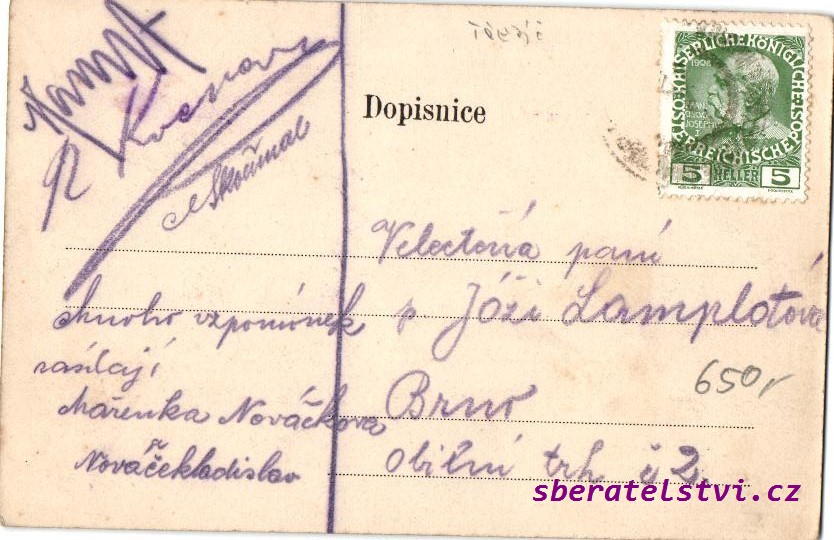 Dopisnice
KAISERLICHE KÖNIGLICHE ÖSTERREICHISCHE
1908
5 HELLER 5
Skoumal
Mnoho vzpomínek
zasílají
Mařenka Nováčkova
Nováček Ladislav
Velectěná paní
p. Jóži Lamplotová
Brno
Obilní trh č 2.
650,-
sberatelstvi.cz